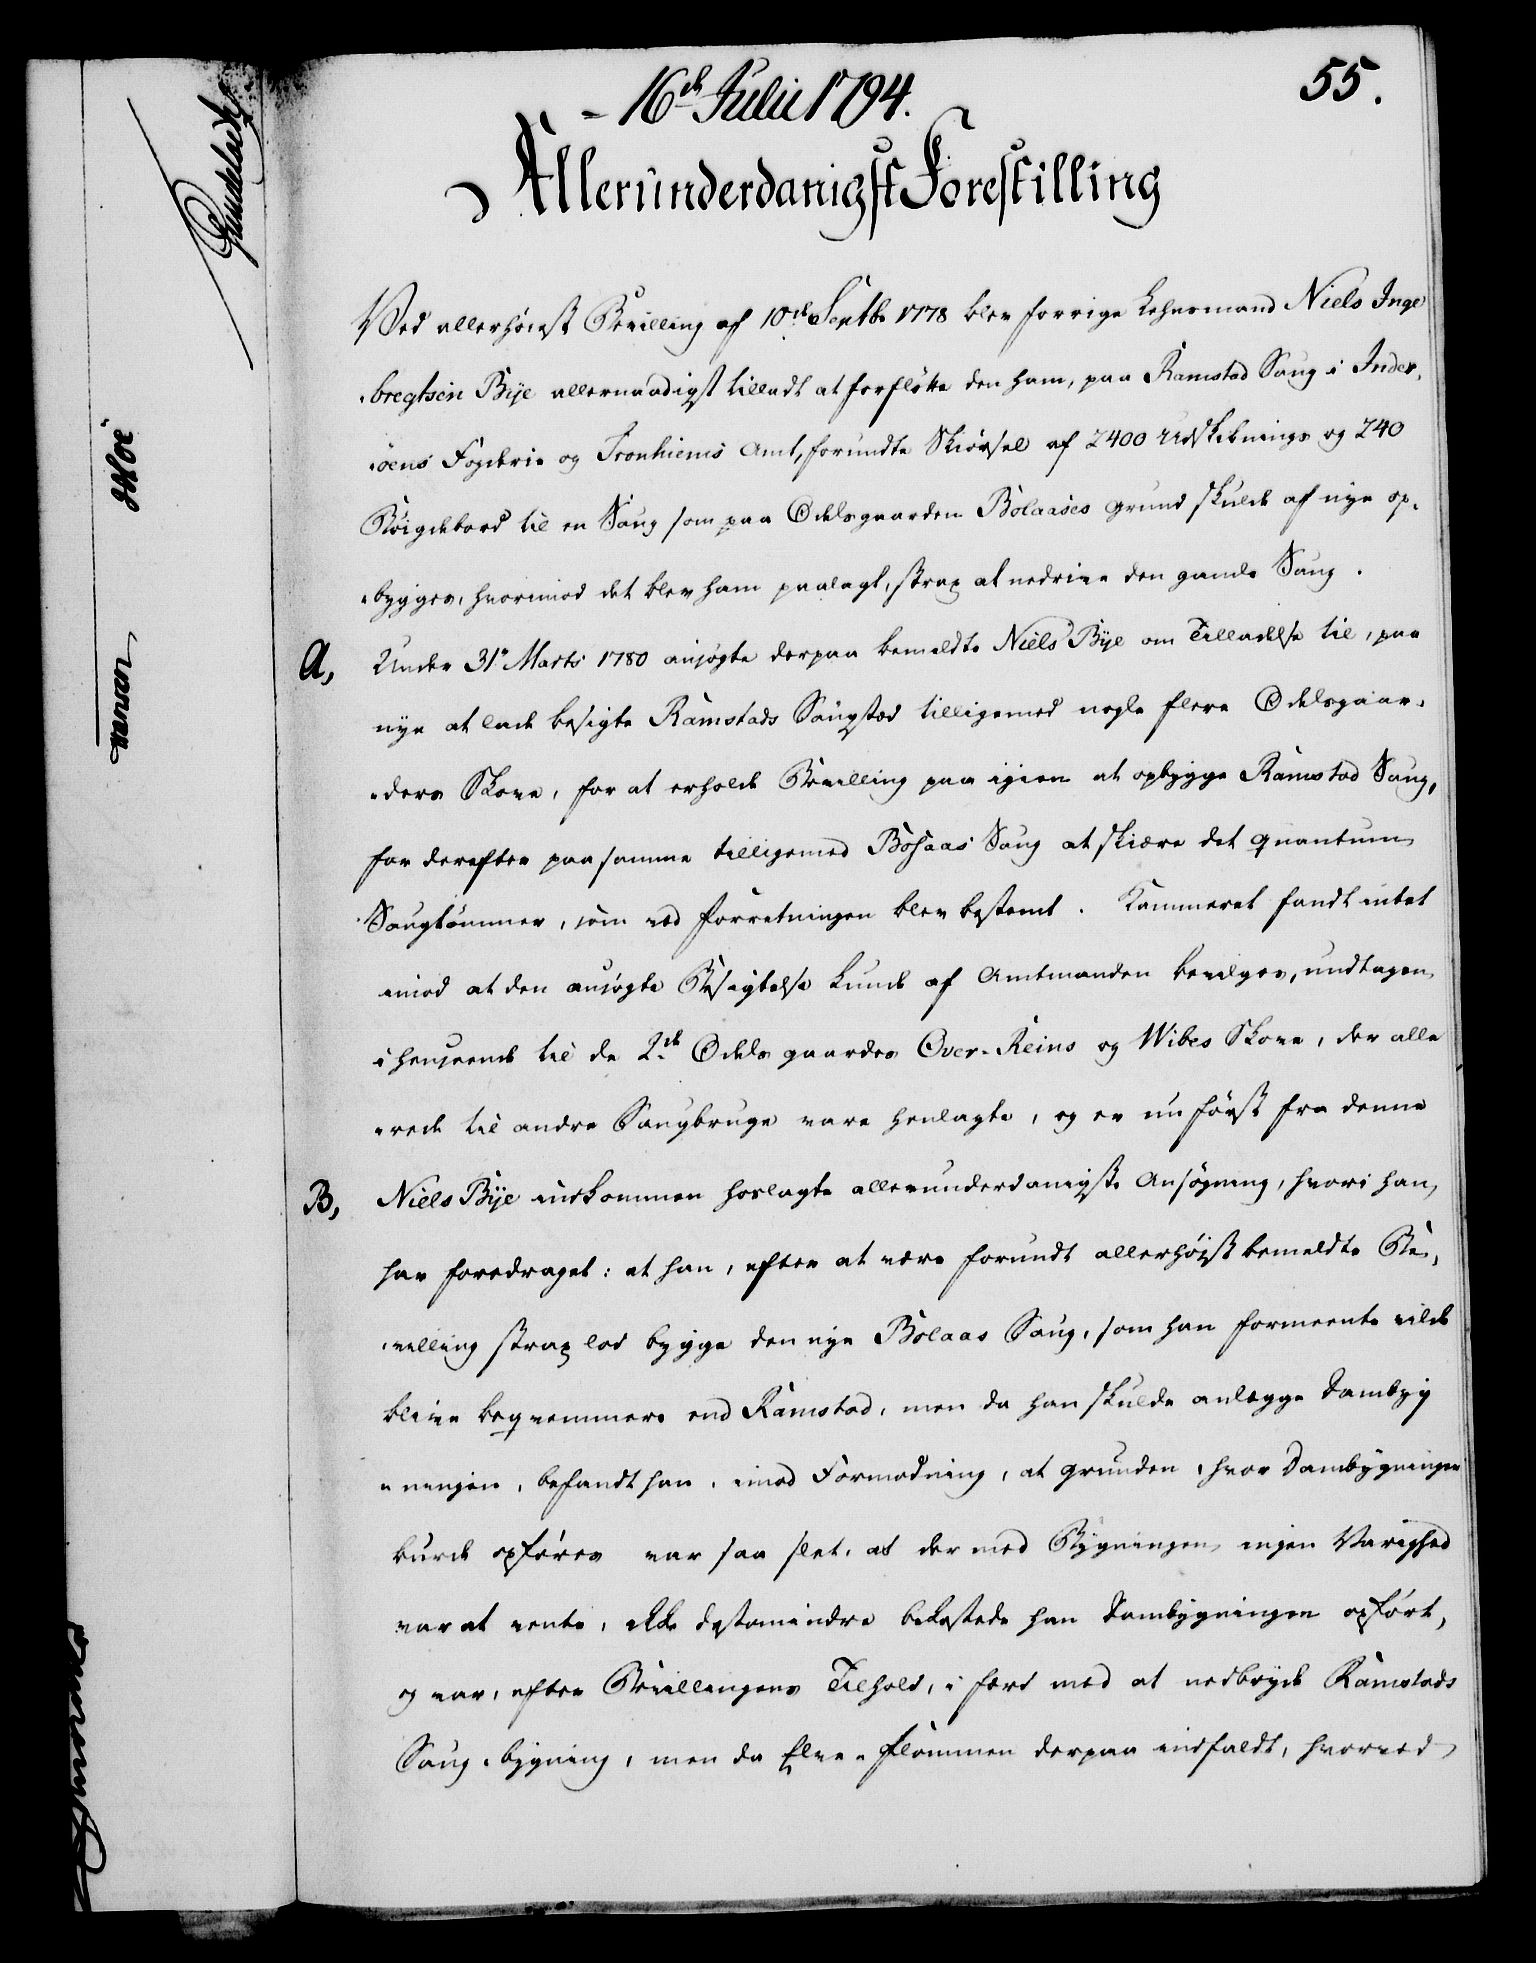 16de Julii 1794.
55.
Allerunderdanigst Forestilling
Ved allerhöiest Bevilling af 10de Septbr 1778 blev forrige Lehnsmand Niels Inge
bregtsen Bye allernaadigst tilladt at forflötte den ham, paa Ramstad Saug i Inder,
öens Fogderie og Tronhiems Amt, forundte Skiörsel af 2400 Udskibnings og 240
Bÿigdebord til en Saug som paa Odelsgaarden Bolaases Grund skulde af nye op,
bygges, hvorimod det blev ham paalagt, strax at nedrive den gamle Saug.
A, Under 31te Marts 1780 ansögte derpaa bemeldte Niels Bÿe om Tilladelse til, paa
nye at lade besigte Ramstads Saugstød tilligemed nogle flere Odelsgaar,
ders Skove, for at erholde Bevilling paa igien at opbygge Ramstad Saug,
for derefter paa samme tilligemed Bolaas Saug at skiære det quantum
Saugtömmer, som ved Forretningen blev bestemt. Kammeret fandt intet
imod at den ansögte Besigtelse kunde af Amtmanden bevilges, undtagen
i henseende til de 2de Odels gaardes Over-Reins og Wibes Skove, der alle
rede til andre Saugbruge vare henlagte, og er nu först fra denne
B, Niels Bÿe indkommen hoslagte allerunderdanigste Ansögning, hvori han,
har foredraget: at han, efter at være forundt allerhöist bemeldte Be,
villing strax lod bygge den nye Bolaas Saug, som han formeente vilde
blive beqvemmere end Ramstad, men da han skulde anlægge Dambyg
ningen, befandt han, imod Formodning, at Grunden, hvor Dambygningen
burde opföres var saa slet, at der med Bygningen ingen Varighed
var at vente, ikke destomindre bekostede han Dambygningen opfört,
og var, efter Bevillingens Tilhold, i færd med at nedbryde Ramstads
Saug-bygning, men da Elve-Flömmen derpaa indfaldt, hvorved